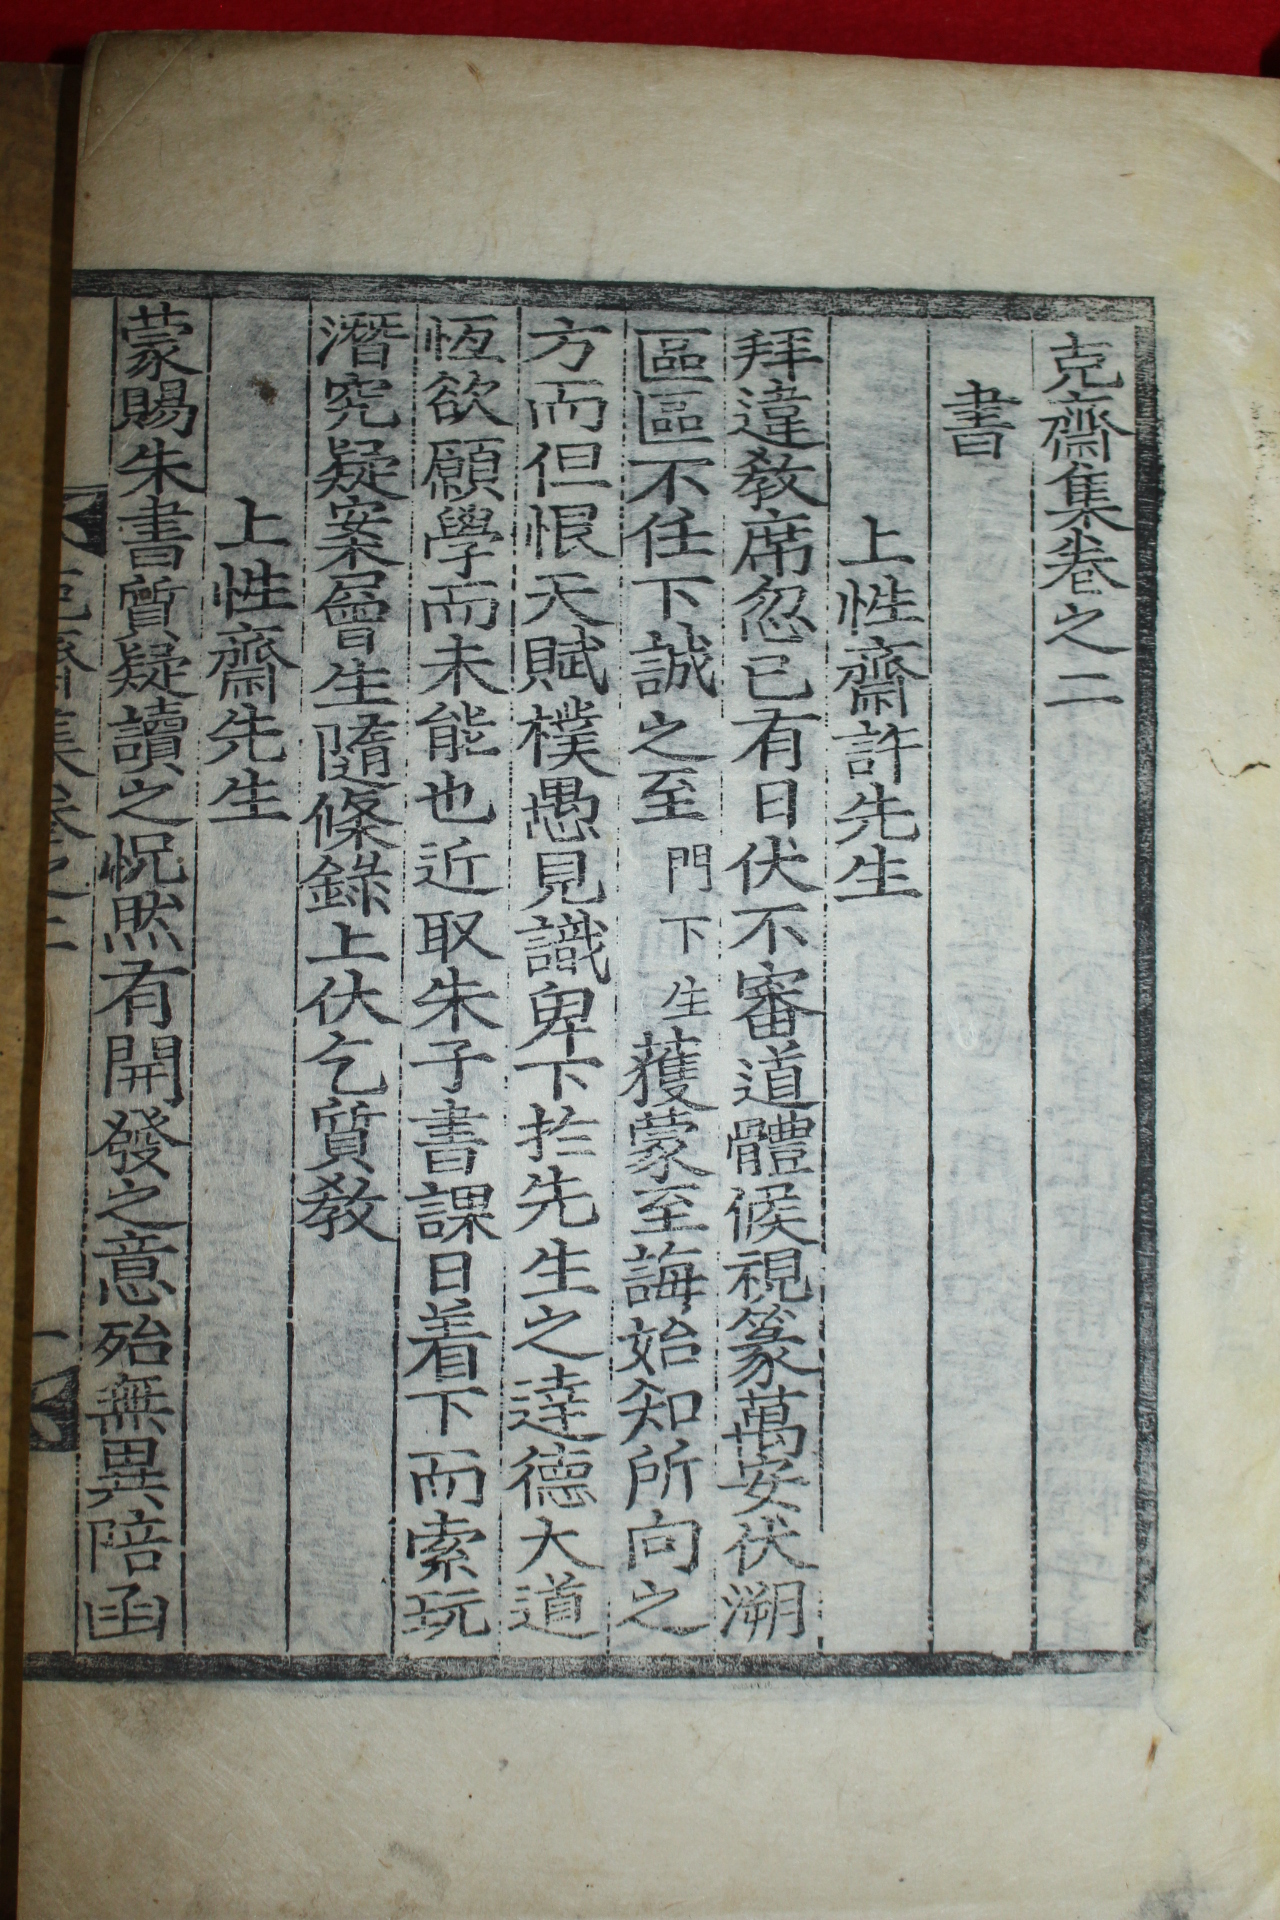 克齋集卷之二
書
上性齋許先生
拜違教席忽已有日伏不審道體候視篆萬安伏溯
區區不任下誠之至門下生獲蒙至誨始知所向之
方而但恨天賦樸愚見識卑下於先生之達德大道
恆欲願學而未能也近取朱子書課日着下而索玩
潛究疑案層生隨條錄上伏乞質教
上性齋先生
蒙賜朱書質疑讀之怳然有開發之意殆無異陪函
克齋集卷之二
一